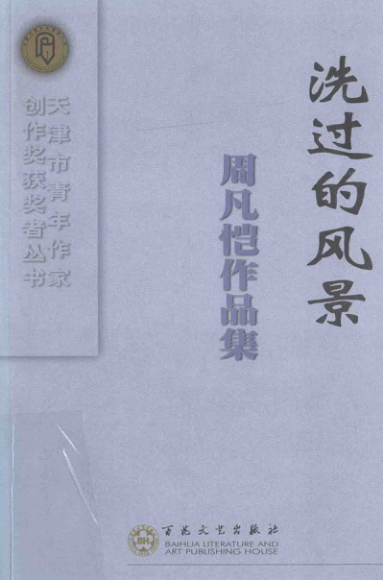 洗过的风景
周凡恺作品集
天津市青年作家
创作奖获奖者丛书
百花文艺出版社
BAIHUA LITERATURE AND
ART PUBLISHING HOUSE
BH